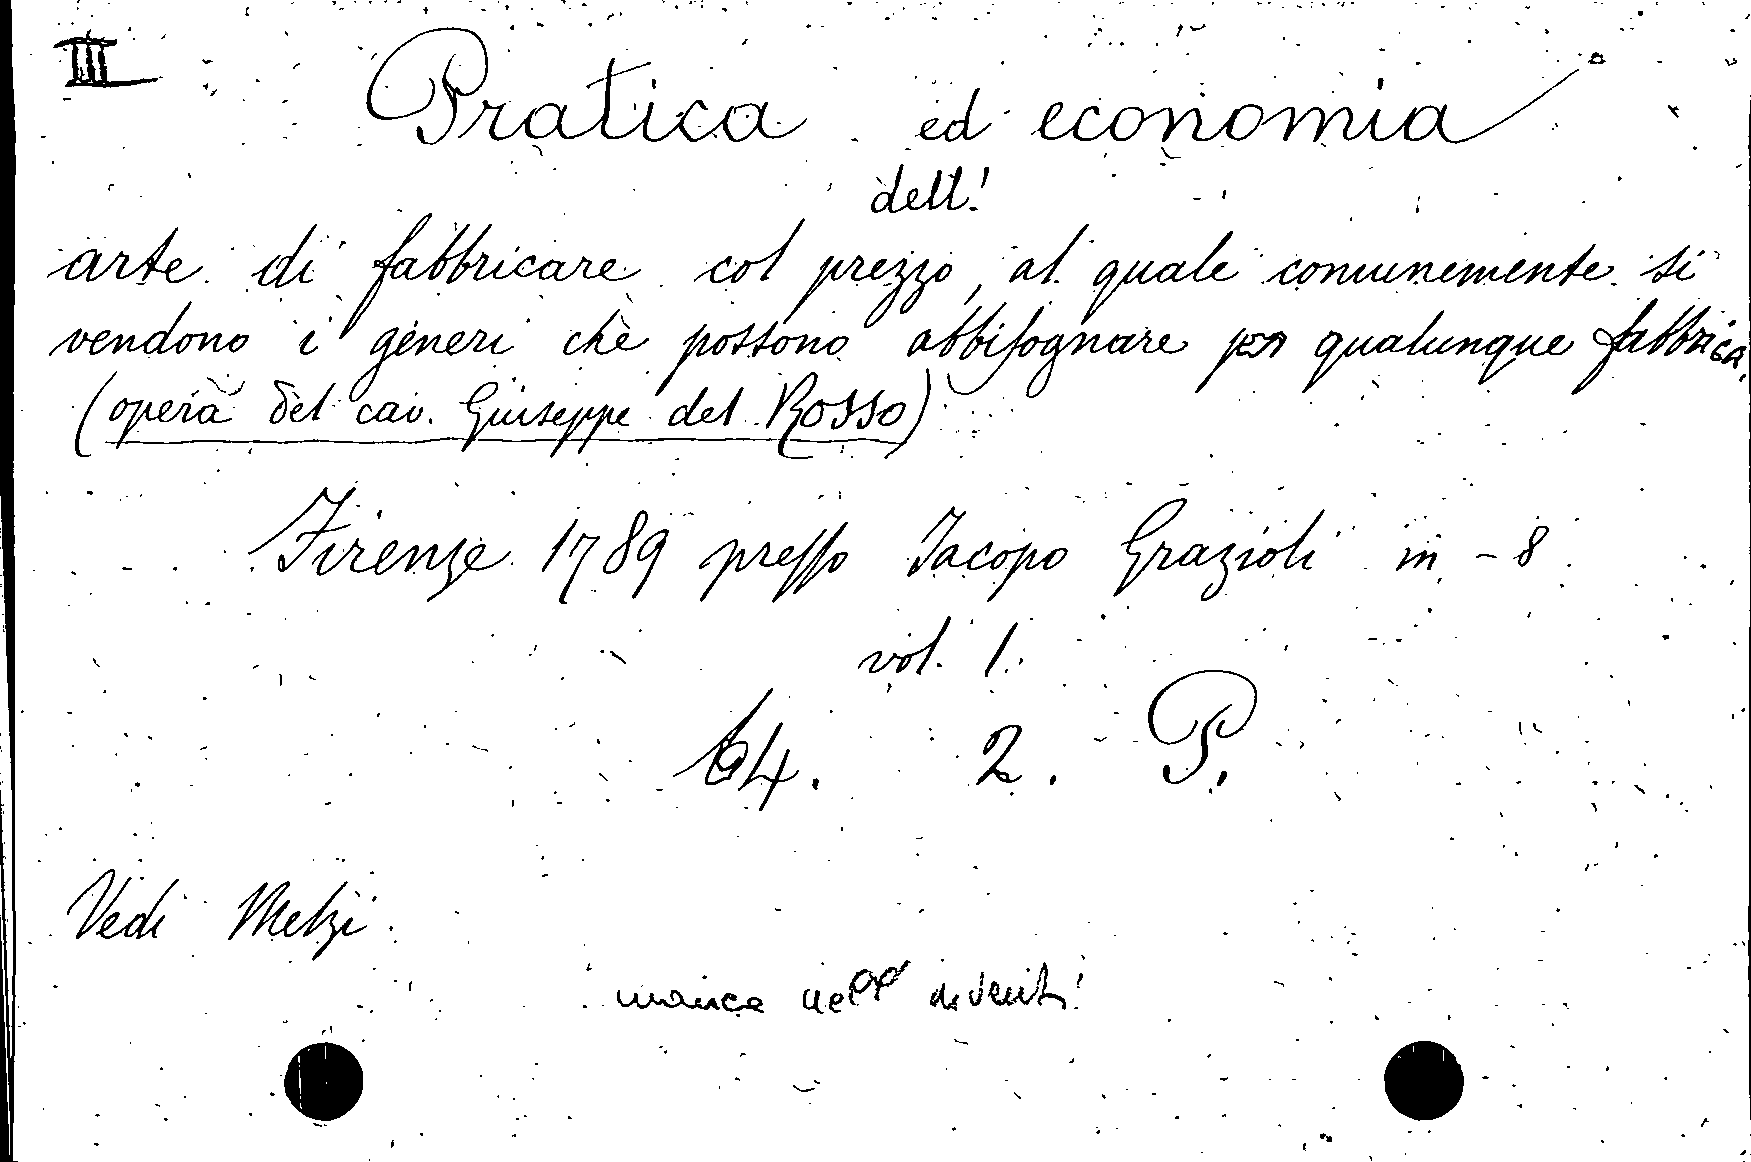 III
Pratica ed economia
dell'
arte di fabbricare col prezzo, al quale comunemente si
vendono i generi che possono abbisognare per qualunque fabbrica.
(opera del cav. Giuseppe del Rosso)
Firenze 1789 presso Jacopo Grazioli in - 8
vol. 1.
64. 2. P.
Vedi Melzi
manca